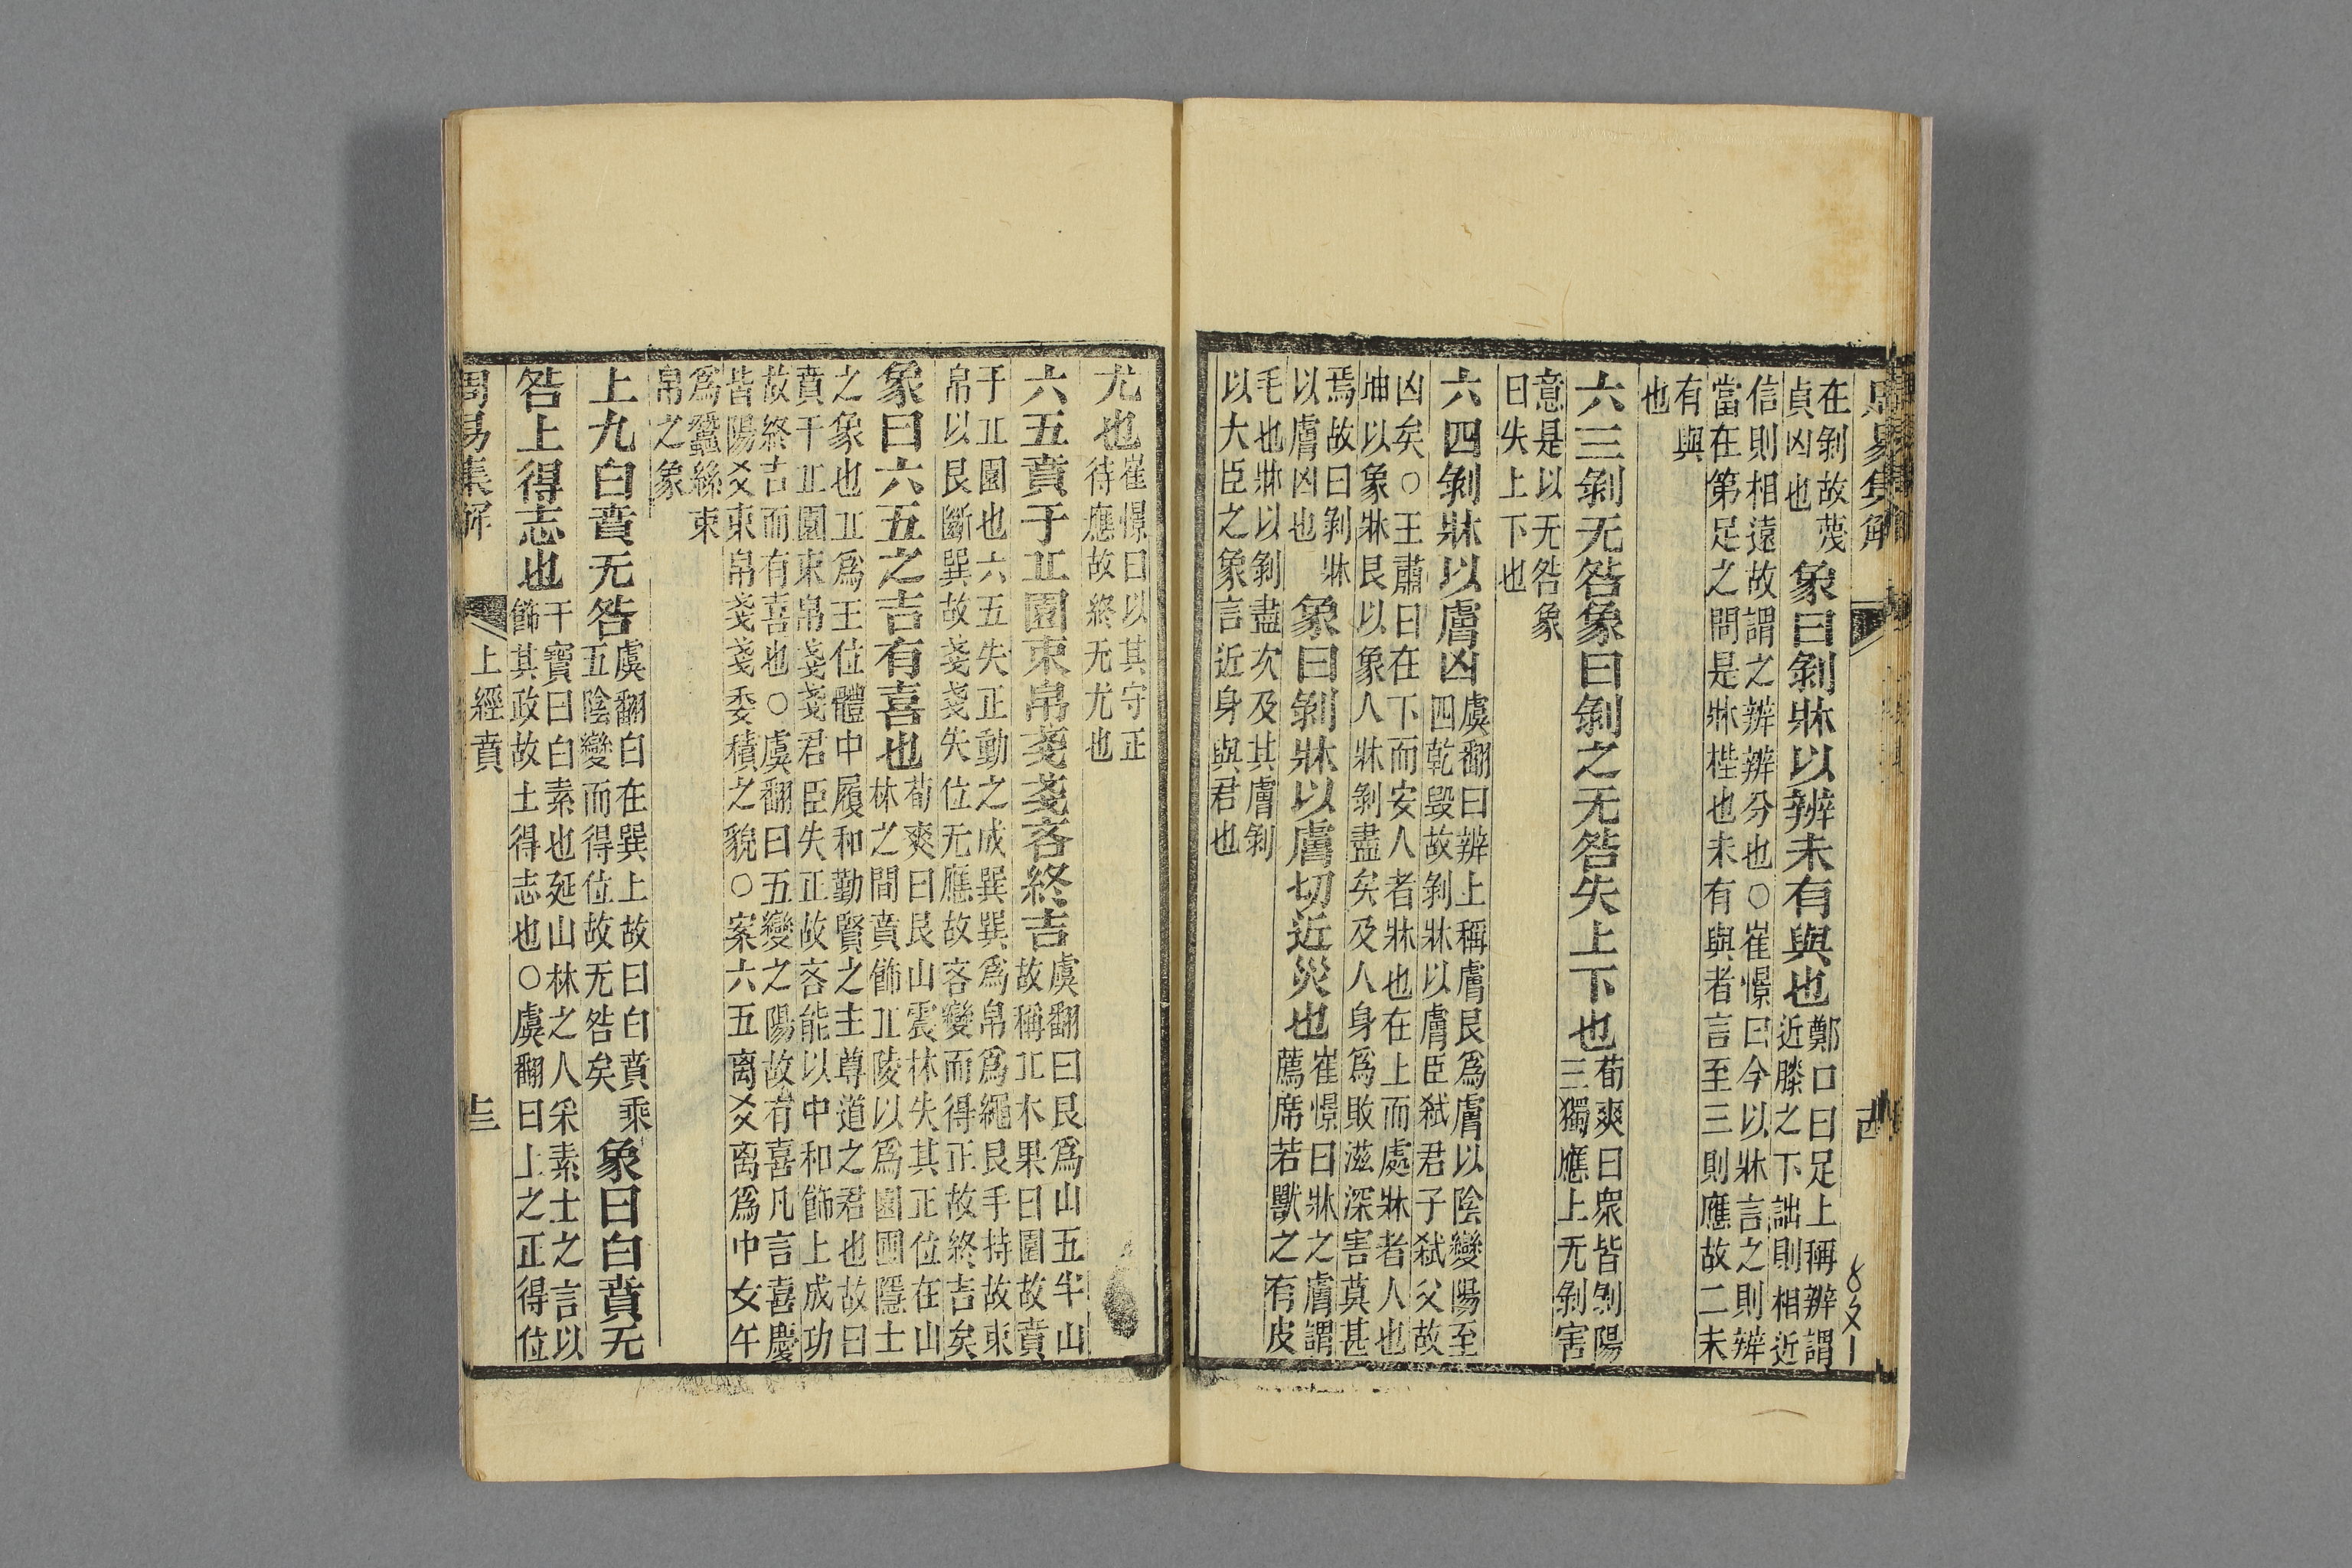 周易集解
在剝故蔑
貞凶也
象曰剝牀以辨未有與也
鄭口曰足上稱辨謂
近膝之下詘則相近
信則相遠故謂之辨辨分也○崔憬曰今以牀言之則辨
當在第足之間是牀梐也未有與者言至三則應故二未
有與
也
六三剝无咎象曰剝之无咎失上下也
荀爽曰衆皆剝陽
三獨應上无剝害
意是以无咎象
曰失上下也
六四剝牀以膚凶
虞翻曰辨上稱膚艮爲膚以陰變陽至
四乾毀故剝牀以膚臣弒君子弒父故
凶矣○王肅曰在下而安人者牀也在上而處牀者人也
坤以象牀艮以象人牀剝盡矣及人身爲敗滋深害莫甚
焉故曰剝牀
以膚凶也
象曰剝牀以膚切近災也
崔憬曰牀之膚謂
薦席若獸之有皮
毛也牀以剝盡次及其膚剝
以大臣之象言近身與君也
尤也
崔憬曰以其守正
待應故終无尤也
六五賁于丠園束帛戔戔吝終吉
虞翻曰艮爲山五半山
故稱丠木果曰園故賁
于丠園也六五失正動之成巽巽爲帛爲繩艮手持故束
帛以艮斷巽故戔戔失位无應故吝變而得正故終吉矣
象曰六五之吉有喜也
荀爽曰艮山震林失其正位在山
林之間賁飾丠陵以爲園圃隱士
之象也丠爲王位體中履和勤賢之主尊道之君也故曰
賁于丠園束帛戔戔君臣失正故吝能以中和飾上成功
故終吉而有喜也○虞翻曰五變之陽故有喜凡言喜慶
皆陽爻束帛戔戔委積之貌○案六五离爻离爲中女午
爲蠶絲束
帛之象
上九白賁无咎
虞翻曰在巽上故曰白賁乘
五陰變而得位故无咎矣
象曰白賁无
咎上得志也
干寶曰白素也延山林之人采素士之言以
飾其政故上得志也○虞翻曰上之正得位
周易集解 上經賁 十三